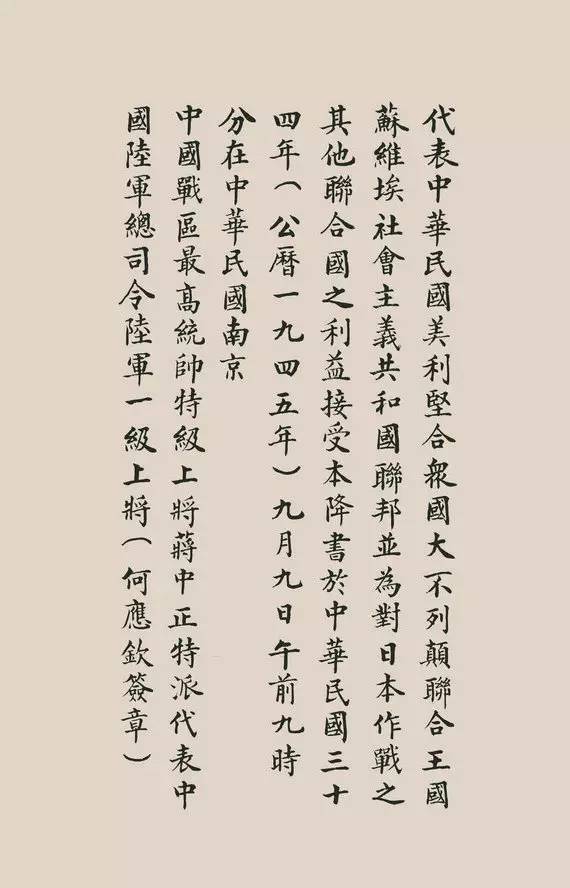 代表中華民國美利堅合衆國大不列顛聯合王國
蘇維埃社會主義共和國聯邦並為對日本作戰之
其他聯合國之利益接受本降書於中華民國三十
四年(公曆一九四五年)九月九日午前九時
分在中華民國南京
中國戰區最高統帥特級上將蔣中正特派代表中
國陸軍總司令陸軍一級上將(何應欽簽章)